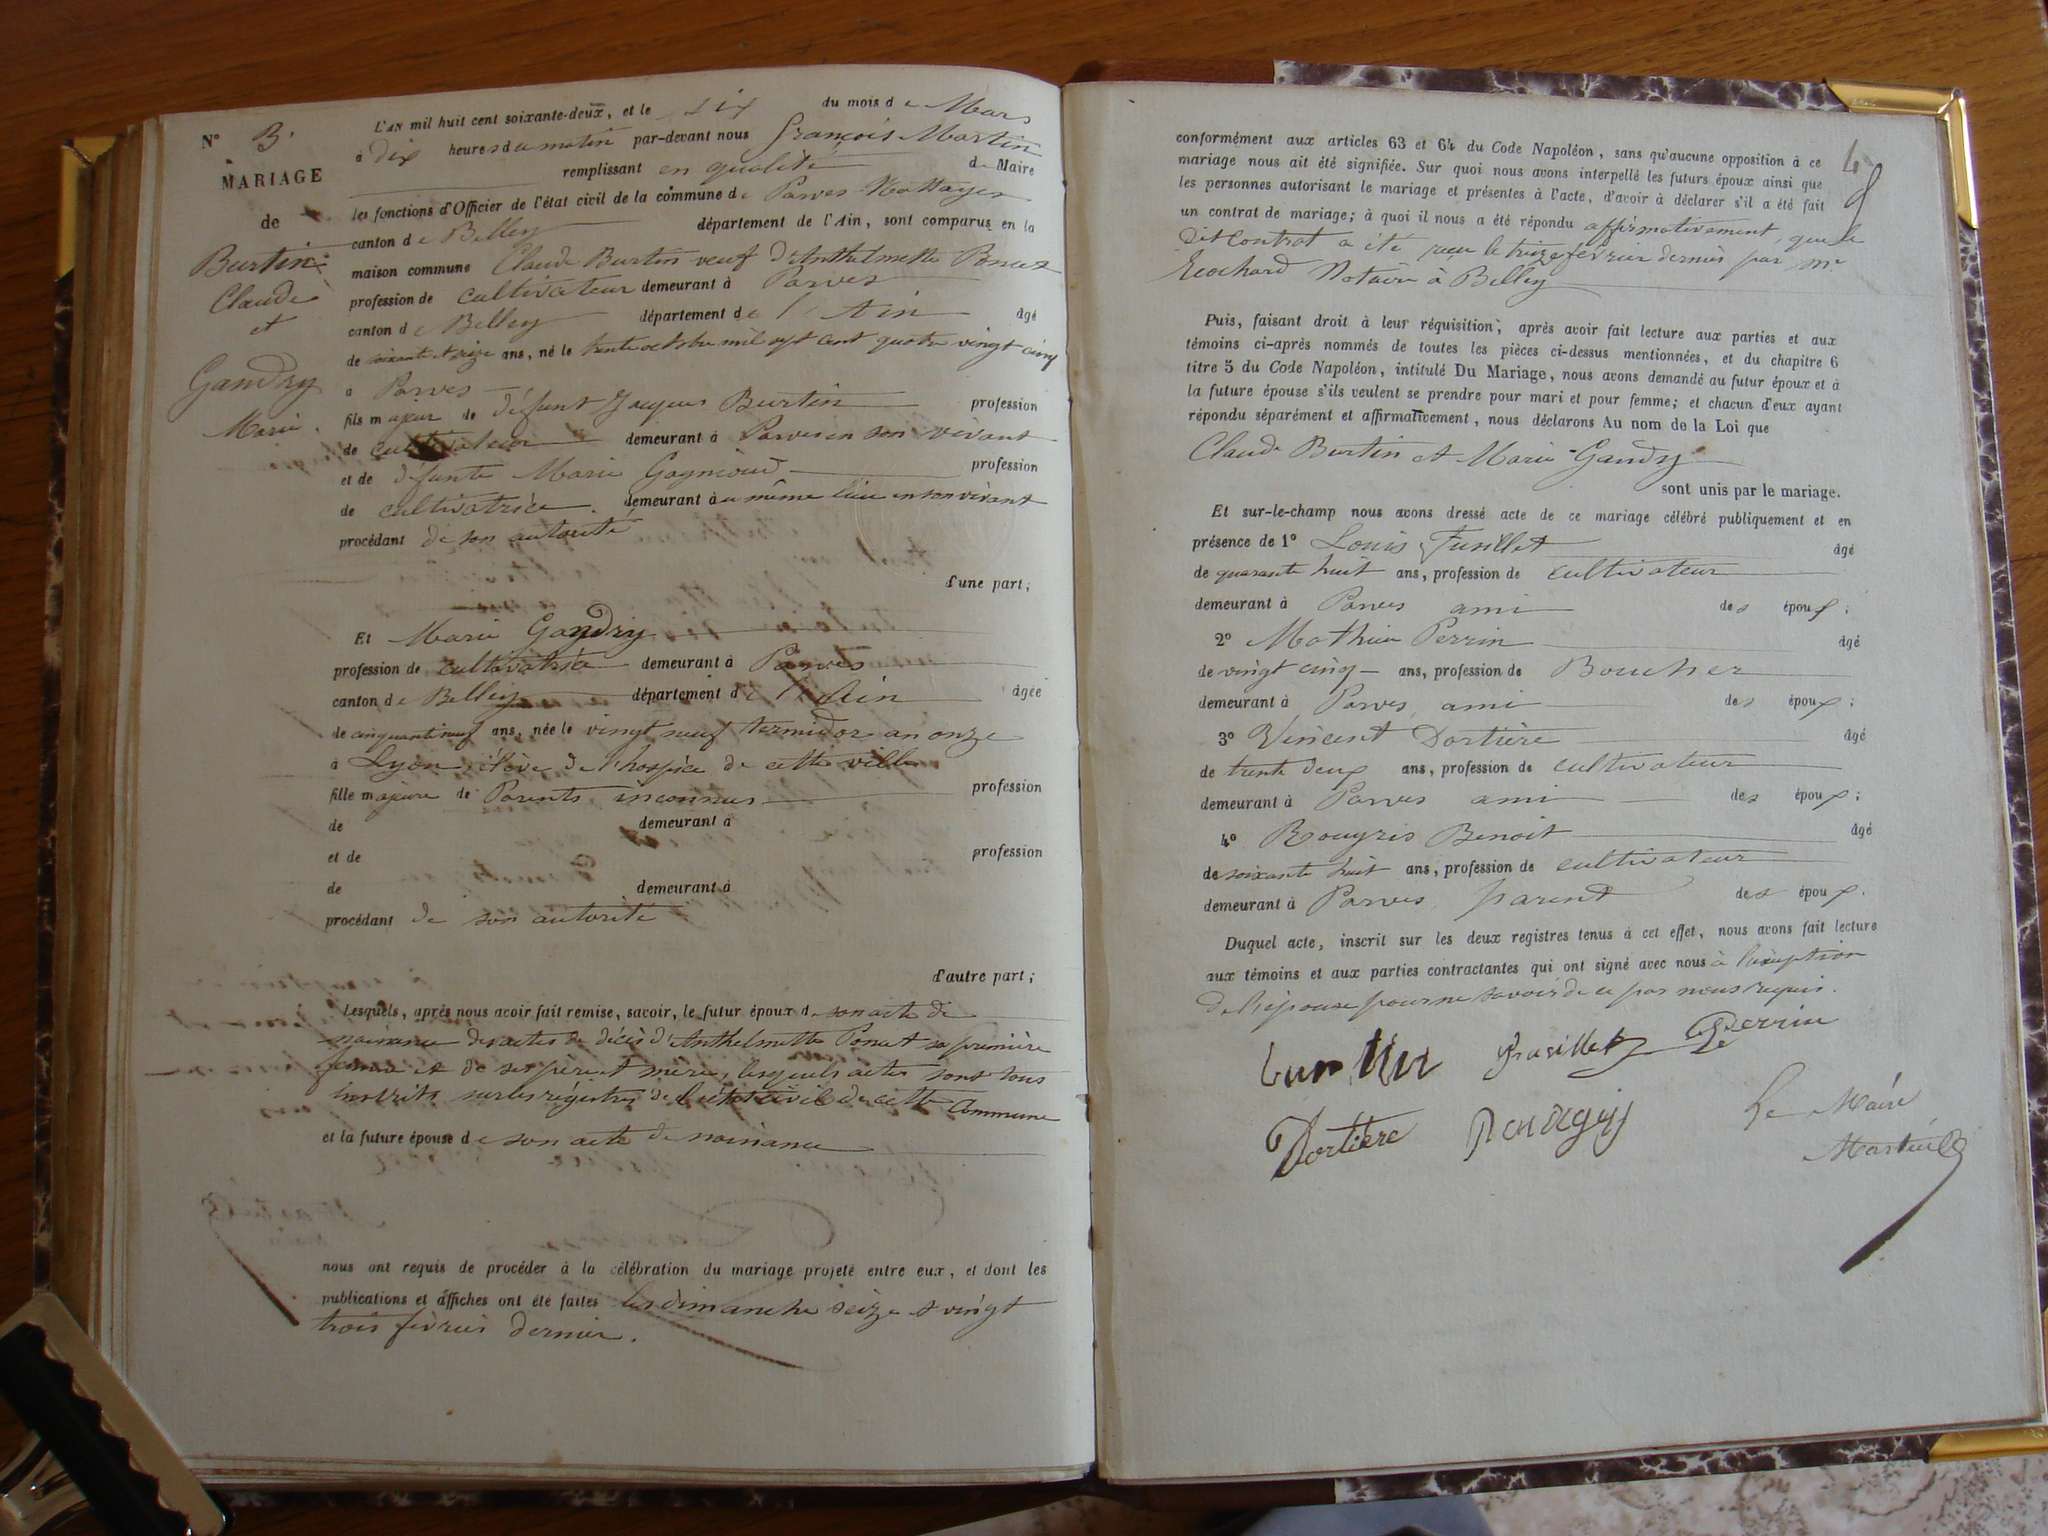 N° 3.
MARIAGE
de
Burtin
Claude
et
Gandry
Marie.
L'AN mil huit cent soixante-deux, et le six du mois de Mars
à dix heures du matin par-devant nous François Martin
remplissant en qualité de Maire
les fonctions d'Officier de l'état civil de la commune de Parves Nattages
canton de Belley département de l'Ain, sont comparus en la
maison commune Claude Burtin veuf d'Anthelmette Poncet
profession de cultivateur demeurant à Parves
canton de Belley département de l'Ain âgé
de soixante et seize ans, né le trente octobre mil sept cent quatre vingt cinq
à Parves
fils majeur de défunt Jacques Burtin profession
de cultivateur demeurant à Parves en son vivant
et de défunte Marie Gagnioud profession
de cultivatrice. demeurant au même lieu en son vivant
procédant de son autorité
d'une part;
Et Marie Gandry
profession de cultivatrice demeurant à Parves
canton de Belley département de l'Ain âgée
de cinquante neuf ans, née le vingt neuf termidor an onze
à Lyon élève de l'hospice de cette ville
fille majeure de Parents inconnus profession
de demeurant à
et de profession
de demeurant à
procédant de son autorité
d'autre part;
Lesquels, après nous avoir fait remise, savoir, le futur époux de son acte de
naissance des actes de décès d'Anthelmette Poncet sa première
femme et de ses père et mère, lesquels actes sont tous
inscrits sur les régistres de l'état civil de cette Commune
et la future épouse de son acte de naissance
nous ont requis de procéder à la célébration du mariage projeté entre eux, et dont les
publications et affiches ont été faites les dimanche seize et vingt
trois février dernier.
4
conformément aux articles 63 et 64 du Code Napoléon, sans qu'aucune opposition à ce
mariage nous ait été signifiée. Sur quoi nous avons interpellé les futurs époux ainsi que
les personnes autorisant le mariage et présentes à l'acte, d'avoir à déclarer s'il a été fait
un contrat de mariage; à quoi il nous a été répondu affirmativement, que le
dit Contrat a été reçu le treize février dernier par Me
Ecochard Notaire à Belley
Puis, faisant droit à leur réquisition, après avoir fait lecture aux parties et aux
témoins ci-après nommés de toutes les pièces ci-dessus mentionnées, et du chapitre 6
titre 5 du Code Napoléon, intitulé Du Mariage, nous avons demandé au futur époux et à
la future épouse s'ils veulent se prendre pour mari et pour femme; et chacun d'eux ayant
répondu séparément et affirmativement, nous déclarons Au nom de la Loi que
Claude Burtin et Marie Gandry
sont unis par le mariage.
Et sur-le-champ nous avons dressé acte de ce mariage célébré publiquement et en
présence de 1° Louis Fusillet âgé
de quarante huit ans, profession de cultivateur
demeurant à Parves ami des époux;
2° Mathieu Perrin âgé
de vingt cinq ans, profession de Boucher
demeurant à Parves ami des époux;
3° Vincent Dortière âgé
de trente deux ans, profession de cultivateur
demeurant à Parves ami des époux;
4° Rougris Benoit âgé
de soixante huit ans, profession de cultivateur
demeurant à Parves parent des époux.
Duquel acte, inscrit sur les deux registres tenus à cet effet, nous avons fait lecture
aux témoins et aux parties contractantes qui ont signé avec nous à l'exception
de l'épouse pour ne savoir de ce par nous requis.
burtin Fusillet Perrin
Dortière Le Maire
Martin